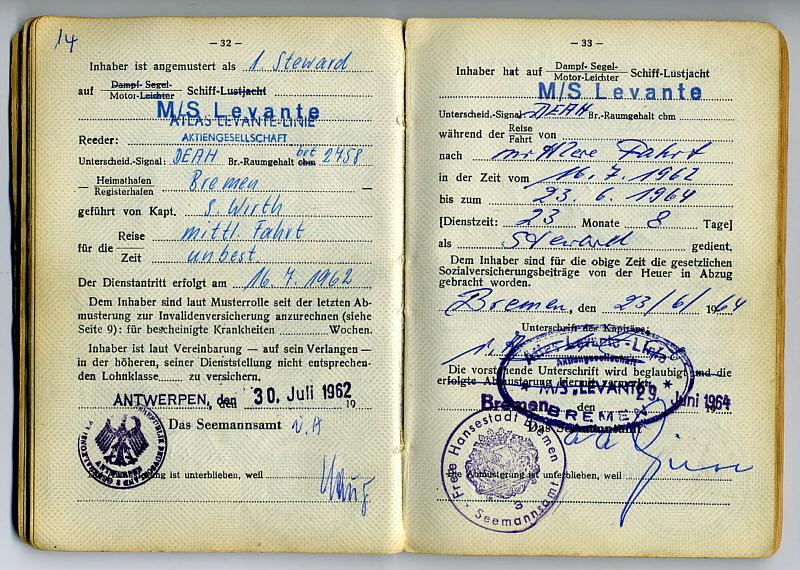 14
— 32 —
Inhaber ist angemustert als 1. Steward
auf Dampf- Segel- Motor-Leichter Schiff-Lustjacht
M/S Levante
ATLAS LEVANTE-LINIE
AKTIENGESELLSCHAFT
Reeder:
Unterscheid.-Signal: DEAH Br.-Raumgehalt cbm brt 2458
Heimathafen Registerhafen Bremen
geführt von Kapt. S. Wirth
für die Reise Zeit mittl. Fahrt unbest
Der Dienstantritt erfolgt am 16. 7. 1962
Dem Inhaber sind laut Musterrolle seit der letzten Ab-
musterung zur Invalidenversicherung anzurechnen (siehe
Seite 9): für bescheinigte Krankheiten Wochen.
Inhaber ist laut Vereinbarung — auf sein Verlangen —
in der höheren, seiner Dienststellung nicht entsprechen-
den Lohnklasse zu versichern.
ANTWERPEN, den 30. Juli 1962 19
Das Seemannsamt
ist unterblieben, weil
— 33 —
Inhaber hat auf Dampf- Segel- Motor-Leichter Schiff-Lustjacht
M/S Levante
Unterscheid.-Signal DEAH Br.-Raumgehalt cbm
während der Reise Fahrt von
nach mittlere Fahrt
in der Zeit vom 16. 7. 1962
bis zum 23. 6. 1964
[Dienstzeit: 23 Monate 8 Tage]
als Steward gedient.
Dem Inhaber sind für die obige Zeit die gesetzlichen
Sozialversicherungsbeiträge von der Heuer in Abzug
gebracht worden.
Bremen, den 23/6/ 1964
Unterschrift des Kapitäns:
Atlas Levante-Linie
Aktiengesellschaft
M/S „LEVANTE"
BREMEN
Die vorstehende Unterschrift wird beglaubigt und die
erfolgte Abmusterung hiermit vermerkt.
Bremen den 29. Juni 1964 19
Das Seemannsamt
Freie Hansestadt Bremen
3
Seemannsamt
Die Abmusterung ist unterblieben, weil